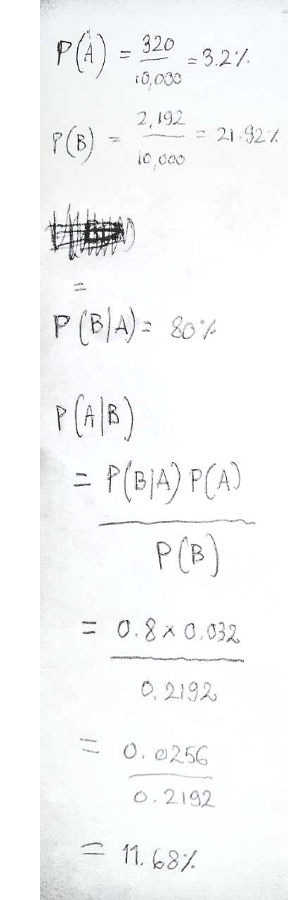 P(A) = 320/10,000 = 3.2%
P(B) = 2,192/10,000 = 21.92%
=
P(B|A) = 80%
P(A|B)
= P(B|A) P(A)
P(B)
= 0.8 × 0.032
0.2192
= 0.0256
0.2192
= 11.68%